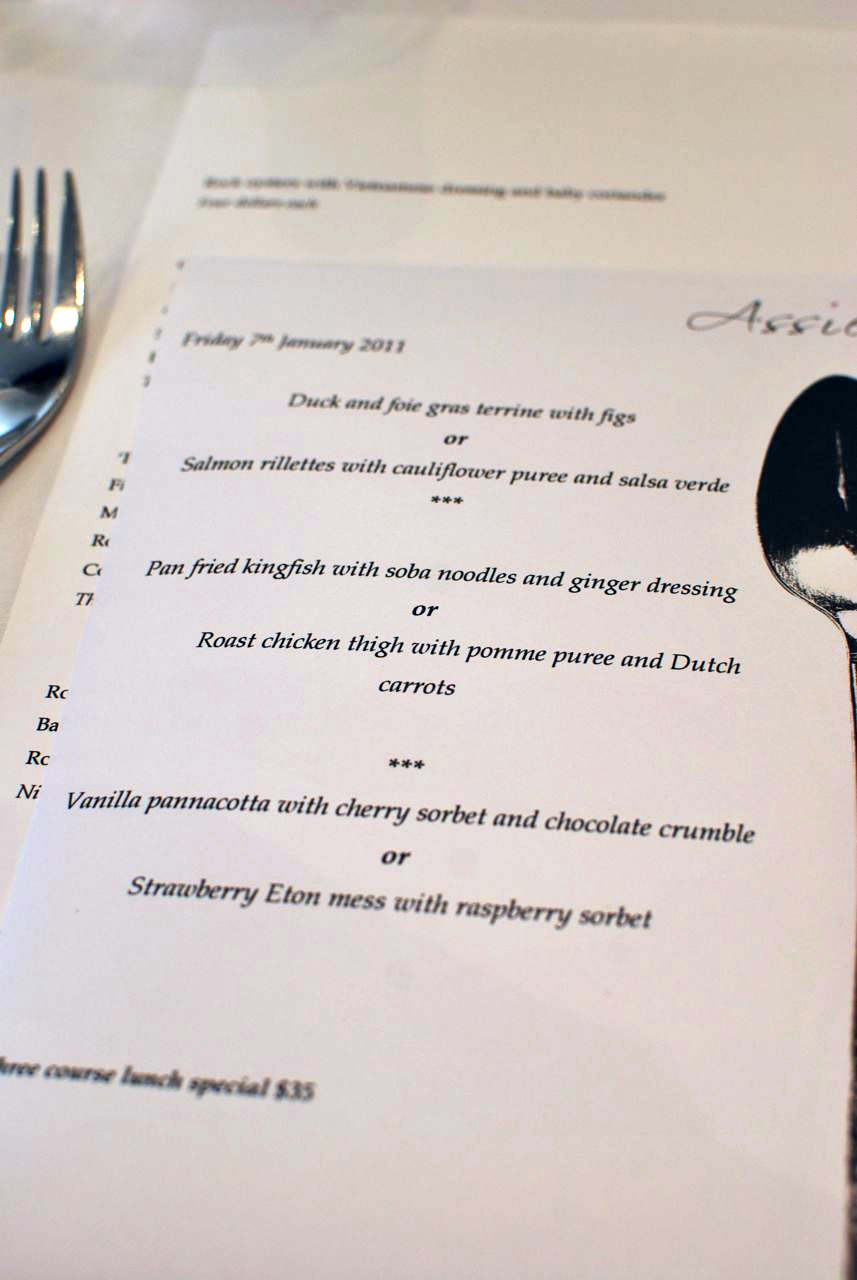 Rock oysters with Vietnamese dressing and baby coriander
Four dollars each
Assie
Friday 7th January 2011
Duck and foie gras terrine with figs
or
Salmon rillettes with cauliflower puree and salsa verde
***
Pan fried kingfish with soba noodles and ginger dressing
or
Roast chicken thigh with pomme puree and Dutch
carrots
***
Vanilla pannacotta with cherry sorbet and chocolate crumble
or
Strawberry Eton mess with raspberry sorbet
hree course lunch special $35
Fi
M
Ro
Co
Th
Ro
Ba
Ro
Ni